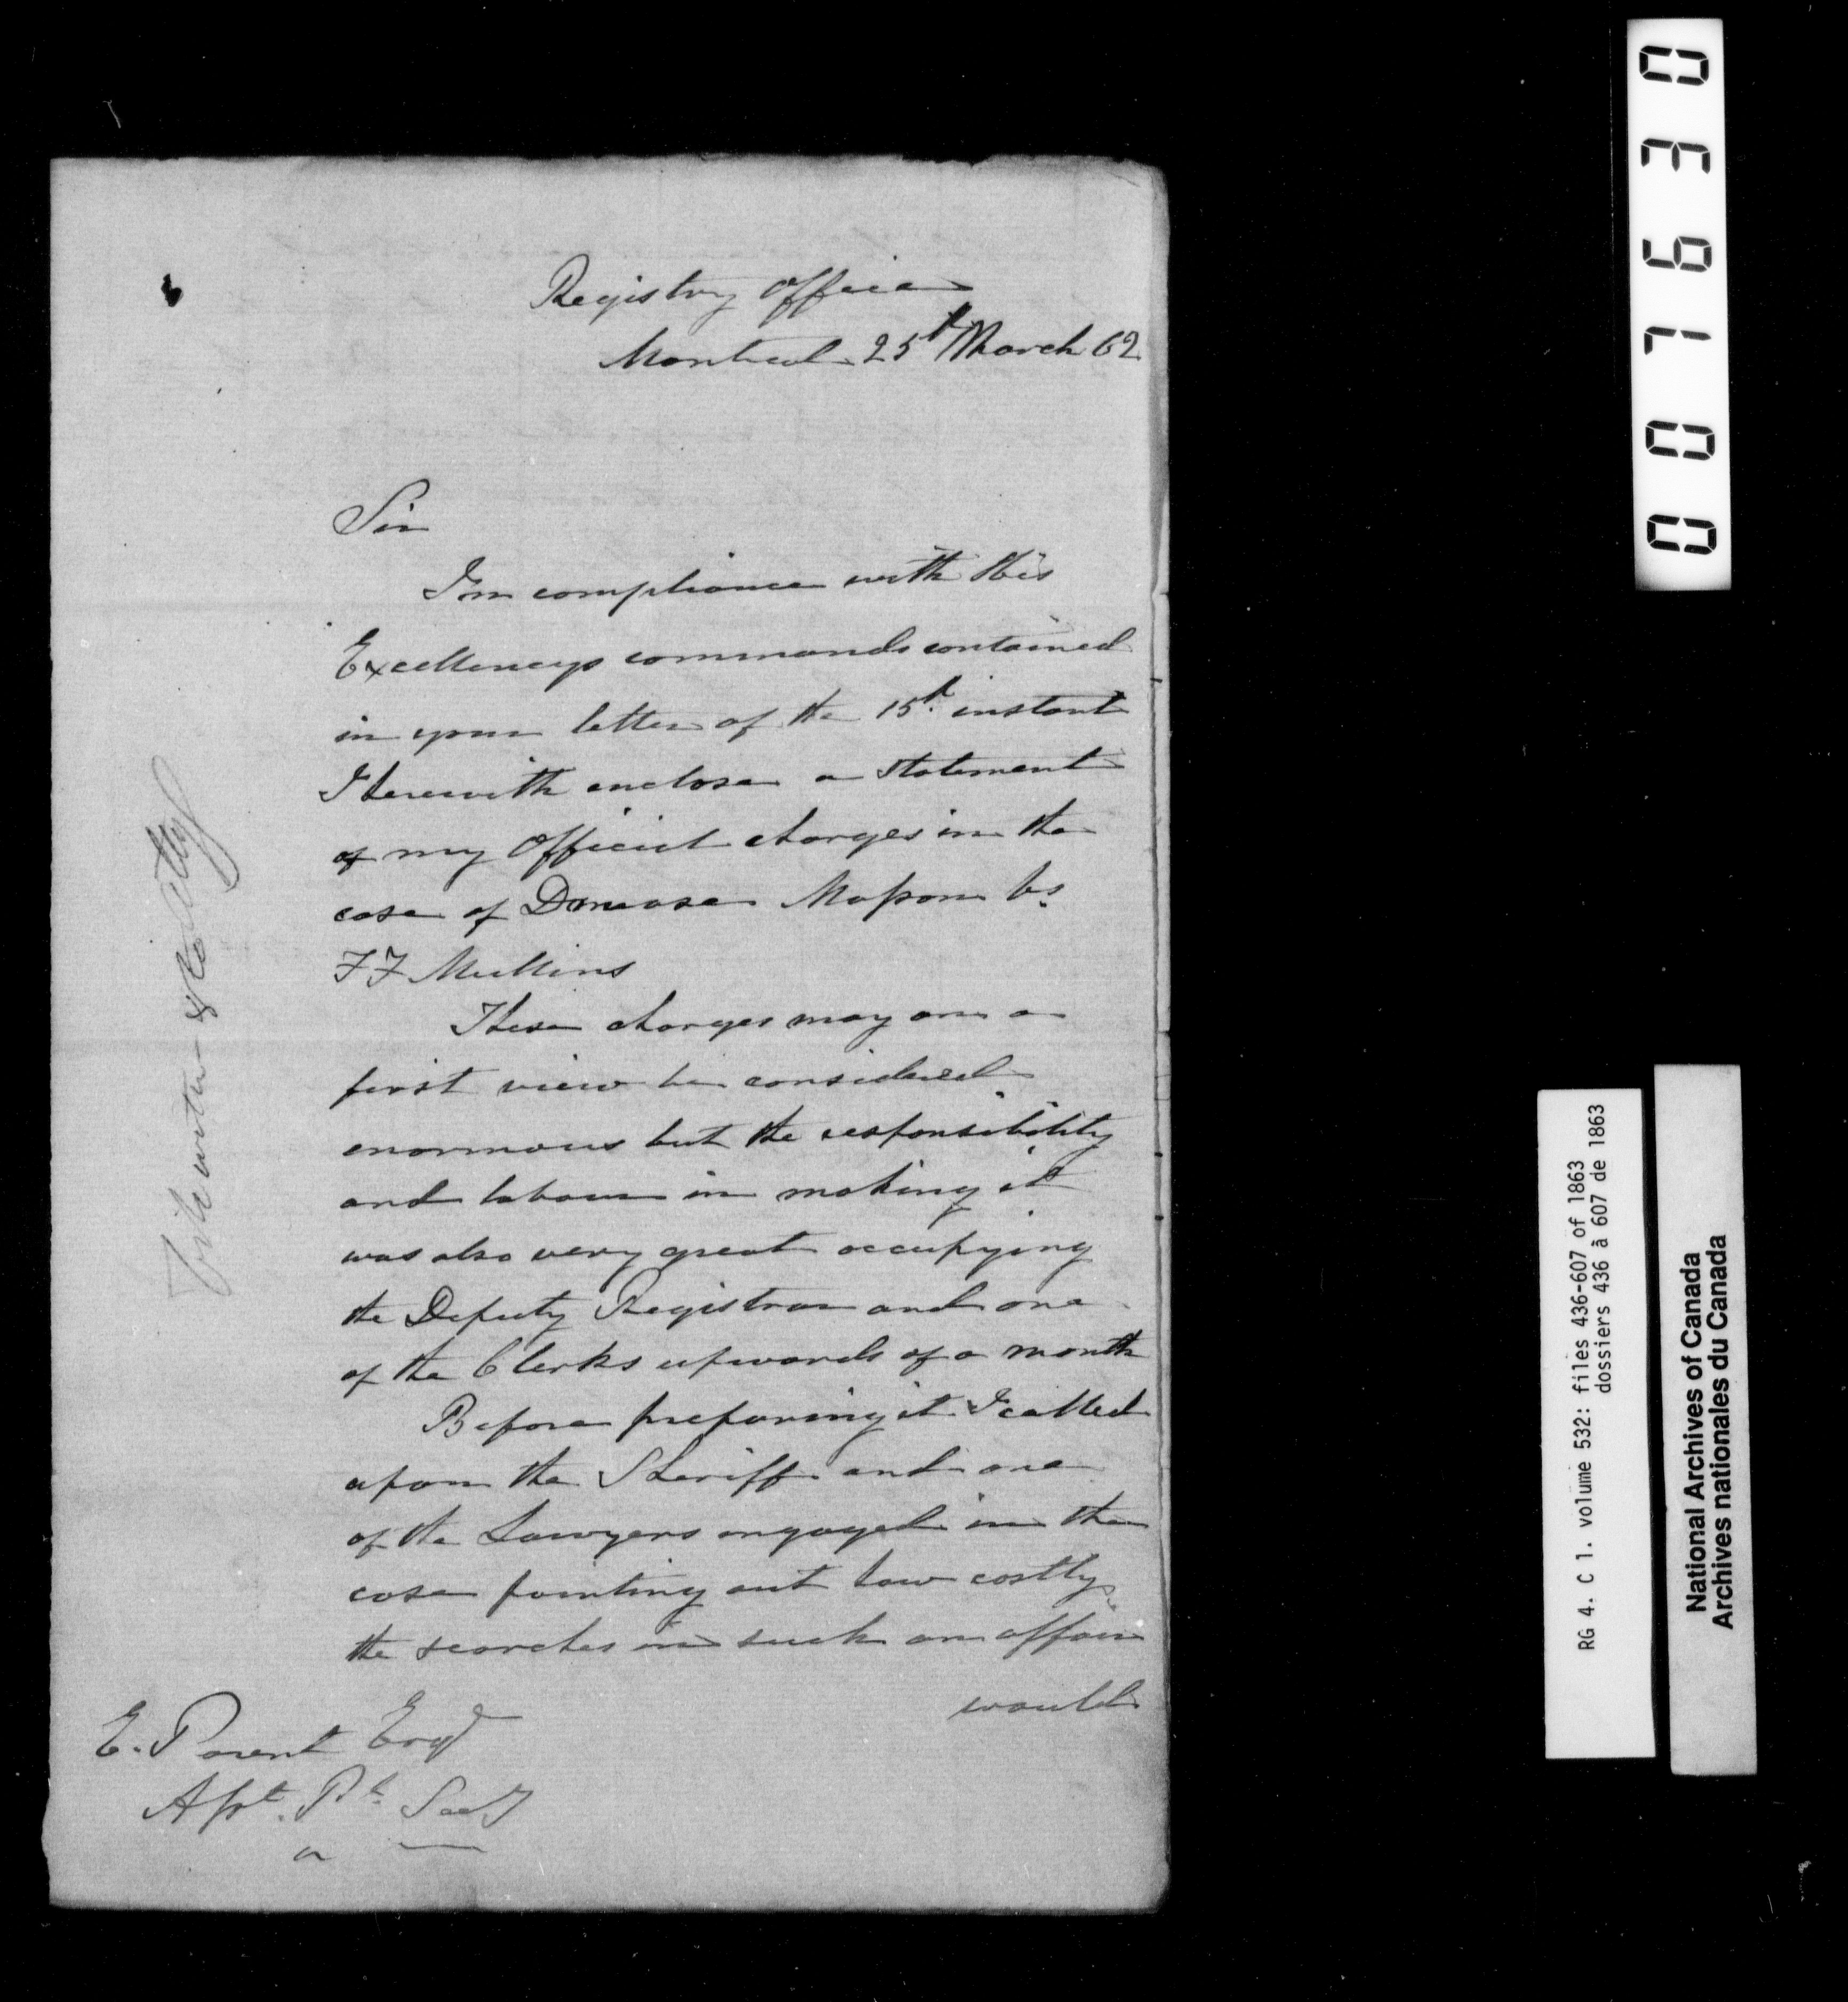 Registry Office
Montreal 25th March 62
Sir
In compliance with His
Excellencys commands contained
in your letter of the 15th instant
I herewith enclose a statement
of my Official charges in the
case of Damase Masson Vs
F F Mullins
These charges may on a
first view be considered
enormous but the responsibility
and labour in making it
was also very great occupying
the Deputy Registrar and one
of the Clerks upwards of a month
Before preparing it I called
upon the Sheriff and one
of the Lawyers engaged in the
case pointing out how costly
the searches in such an affair
would
E. Parent Esqr
Asst. Pl. Secy
007630
RG 4. C 1. volume 532: files 436-607 of 1863
dossiers 436 à 607 de 1863
National Archives of Canada
Archives nationales du Canada